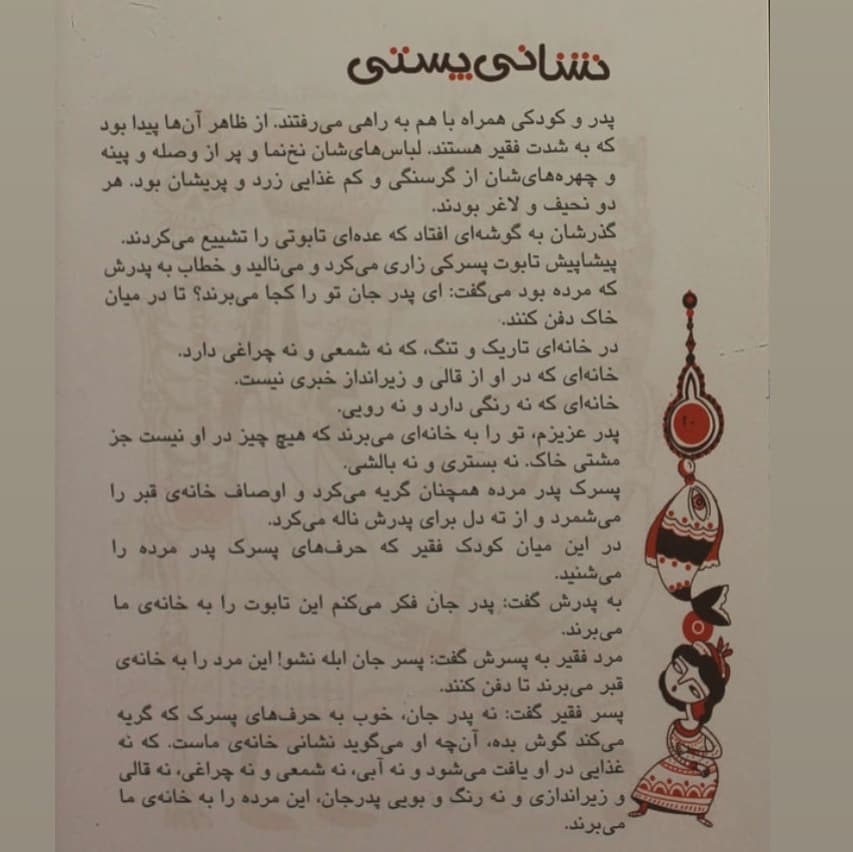 نشانی پستی
پدر و کودکی همراه با هم به راهی می‌رفتند. از ظاهر آن‌ها پیدا بود
که به شدت فقیر هستند. لباس‌های‌شان نخ‌نما و پر از وصله و پینه
و چهره‌های‌شان از گرسنگی و کم غذایی زرد و پریشان بود. هر
دو نحیف و لاغر بودند.
گذرشان به گوشه‌ای افتاد که عده‌ای تابوتی را تشییع می‌کردند.
پیشاپیش تابوت پسرکی زاری می‌کرد و می‌نالید و خطاب به پدرش
که مرده بود می‌گفت: ای پدر جان تو را کجا می‌برند؟ تا در میان
خاک دفن کنند.
در خانه‌ای تاریک و تنگ، که نه شمعی و نه چراغی دارد.
خانه‌ای که در او از قالی و زیرانداز خبری نیست.
خانه‌ای که نه رنگی دارد و نه رویی.
پدر عزیزم، تو را به خانه‌ای می‌برند که هیچ چیز در او نیست جز
مشتی خاک. نه بستری و نه بالشی.
پسرک پدر مرده همچنان گریه می‌کرد و اوصاف خانه‌ی قبر را
می‌شمرد و از ته دل برای پدرش ناله می‌کرد.
در این میان کودک فقیر که حرف‌های پسرک پدر مرده را
می‌شنید.
به پدرش گفت: پدر جان فکر می‌کنم این تابوت را به خانه‌ی ما
می‌برند.
مرد فقیر به پسرش گفت: پسر جان ابله نشو! این مرد را به خانه‌ی
قبر می‌برند تا دفن کنند.
پسر فقیر گفت: نه پدر جان، خوب به حرف‌های پسرک که گریه
می‌کند گوش بده، آن‌چه او می‌گوید نشانی خانه‌ی ماست. که نه
غذایی در او یافت می‌شود و نه آبی، نه شمعی و نه چراغی، نه قالی
و زیراندازی و نه رنگ و بویی پدرجان، این مرده را به خانه‌ی ما
می‌برند.
۲۰